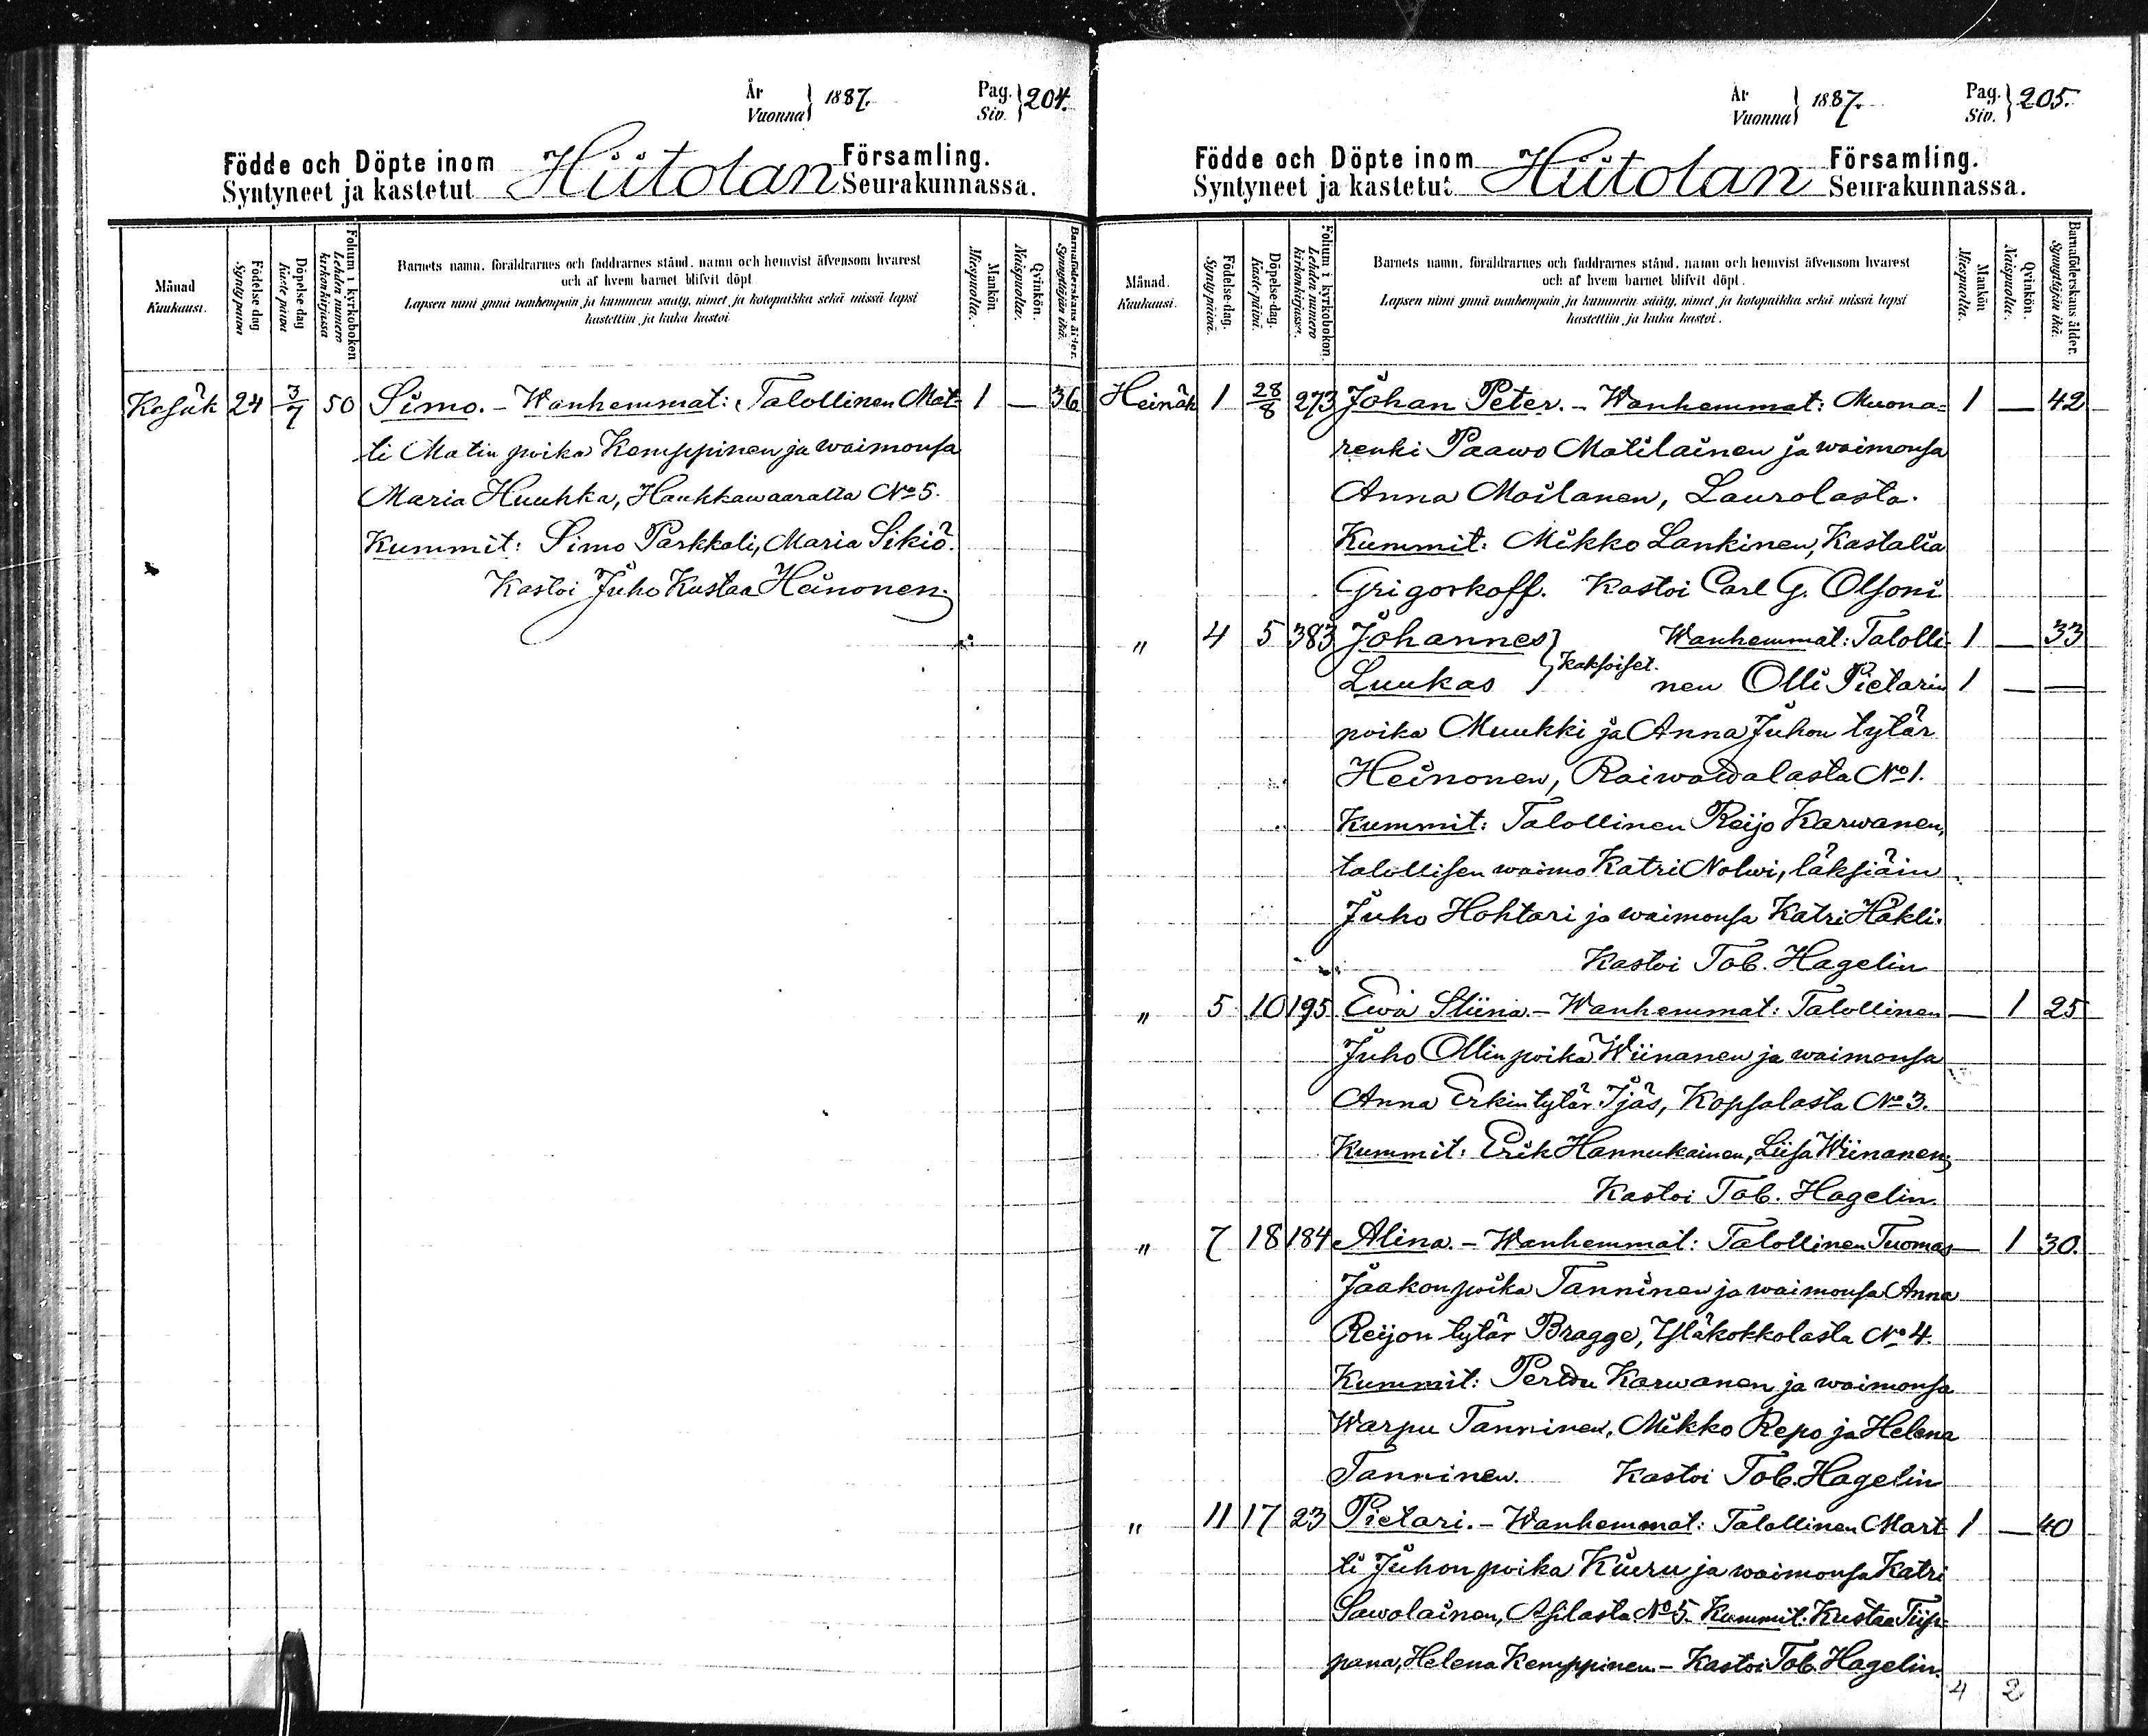 År
Vuonna } 1887.
Pag.
Siv. } 204.
Födde och Döpte inom Hiitolan Församling.
Syntyneet ja kastetut Seurakunnassa.
Månad
Kuukausi.
Födelse-dag
Syntypäivä
Döpelse-dag
Kaste-päivä
Folium i kyrkoboken
Lehden numero
kirkonkirjassa
Barnets namn, föräldrarnes och faddrarnes stånd, namn och hemvist äfvensom hvarest
och af hvem barnet blifvit döpt
Lapsen nimi ynnä vanhempain ja kummein sääty, nimet ja kotopaikka sekä missä lapsi
kastettiin ja kuka kastoi
Mankön
Miespuolta.
Qvinkön.
Naispuolta.
Barnaföderskans ålder.
Synnyttäjän ikä.
Kesäk 24 3/7 50 Simo. - Wanhemmat: Talollinen Mat- 1 — 36
ti Matin poika Kemppinen ja waimonsa
Maria Huuhka, Haukkawaaralta No 5.
Kummit: Simo Parkkali, Maria Sikiö.
Kastoi Juho Kustaa Heinonen.
År
Vuonna } 1887.
Pag.
Siv. } 205.
Födde och Döpte inom Hiitolan Församling.
Syntyneet ja kastetut Seurakunnassa.
Månad.
Kuukausi.
Födelse-dag.
Syntypäivä.
Döpelse-dag.
Kaste-päivä.
Folium i kyrkoboken.
Lehden numero
kirkonkirjassa.
Barnets namn, föräldrarnes och faddrarnes stånd, namn och hemvist äfvensom hvarest
och af hvem barnet blifvit döpt.
Lapsen nimi ynnä vanhempain ja kummein sääty, nimet ja kotopaikka sekä missä lapsi
kastettiin ja kuka kastoi.
Mankön
Miespuolta.
Qvinkön.
Naispuolta.
Barnaföderskans ålder.
Synnyttäjän ikä.
Heinäk 1 28/8 273 Johan Peter. - Wanhemmat: Muona- 1 — 42
renki Paawo Matilainen ja waimonsa
Anna Moilanen, Laurolasta.
Kummit: Mikko Lankinen, Kastalia
Grigorkoff. Kastoi Carl G. Olsoni
" 4 5 383 Johannes } Wanhemmat: Talolli- 1 — 33
Luukas } Kaksoiset. nen Olli Pietarin 1 — —
poika Muukki ja Anna Juhon tytär
Heinonen, Raiwattalasta No 1.
Kummit: Talollinen Reijo Karwanen,
talollisen waimo Katri Nolwi, läksiäin
Juho Hohtari ja waimonsa Katri Häkli.
Kastoi Tob. Hagelin
" 5 10 195 Ewa Stiina. - Wanhemmat: Talollinen — 1 25
Juho Ollin poika Wiinanen ja waimonsa
Anna Erkin tytär Ijäs, Kopsalasta No 3.
Kummit: Erik Hannukainen, Liisa Wiinanen,
Kastoi Tob. Hagelin.
" 7 18 184 Alina. - Wanhemmat: Talollinen Tuomas — 1 30.
Jaakon poika Tanninen ja waimonsa Anna
Reijon tytär Bragge, Yläkokkolasta No 4.
Kummit: Perttu Karwanen ja waimonsa
Warpu Tanninen, Mikko Repo ja Helena
Tanninen. Kastoi Tob. Hagelin
" 11 17 23 Pietari. - Wanhemmat: Talollinen Mart- 1 — 40
ti Juhon poika Kiuru ja waimonsa Katri
Sawolainen, Asilasta No 5. Kummit: Kustaa Tiip-
pana, Helena Kemppinen. - Kastoi Tob. Hagelin.
4 2